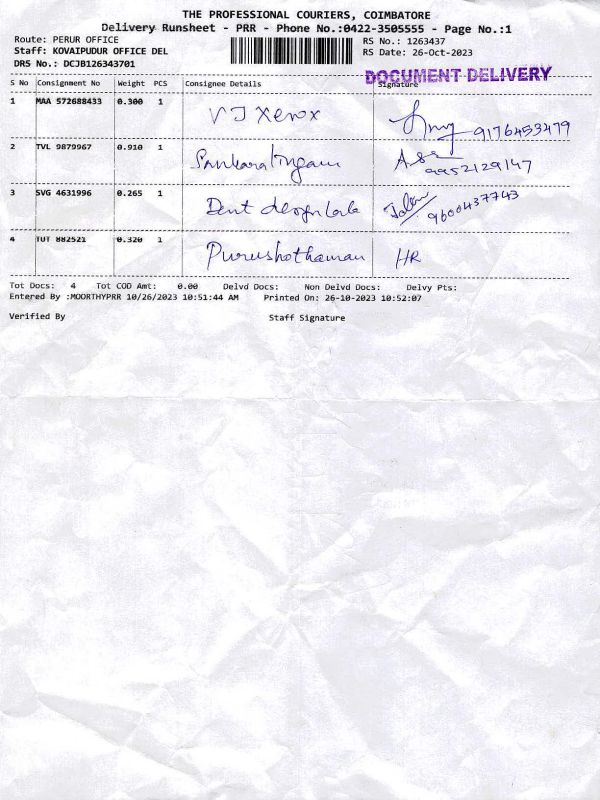 THE PROFESSIONAL COURIERS, COIMBATORE
Delivery Runsheet - PRR - Phone No.:0422-3505555 - Page No.:1
Route: PERUR OFFICE
RS No.: 1263437
Staff: KOVAIPUDUR OFFICE DEL
RS Date: 26-Oct-2023
DRS No.: DCJB126343701
DOCUMENT DELIVERY
S No Consignment No Weight PCS Consignee Details Signature
1 MAA 572688433 0.300 1 VJ Xerox 9176453479
2 TVL 9879967 0.910 1 Sankaralingam 9952129147
3 SVG 4631996 0.265 1 Dent design lab 9600437743
4 TUT 882521 0.320 1 Purushothaman HR
Tot Docs: 4 Tot COD Amt: 0.00 Delvd Docs: Non Delvd Docs: Delvy Pts:
Entered By :MOORTHYPRR 10/26/2023 10:51:44 AM Printed On: 26-10-2023 10:52:07
Verified By Staff Signature